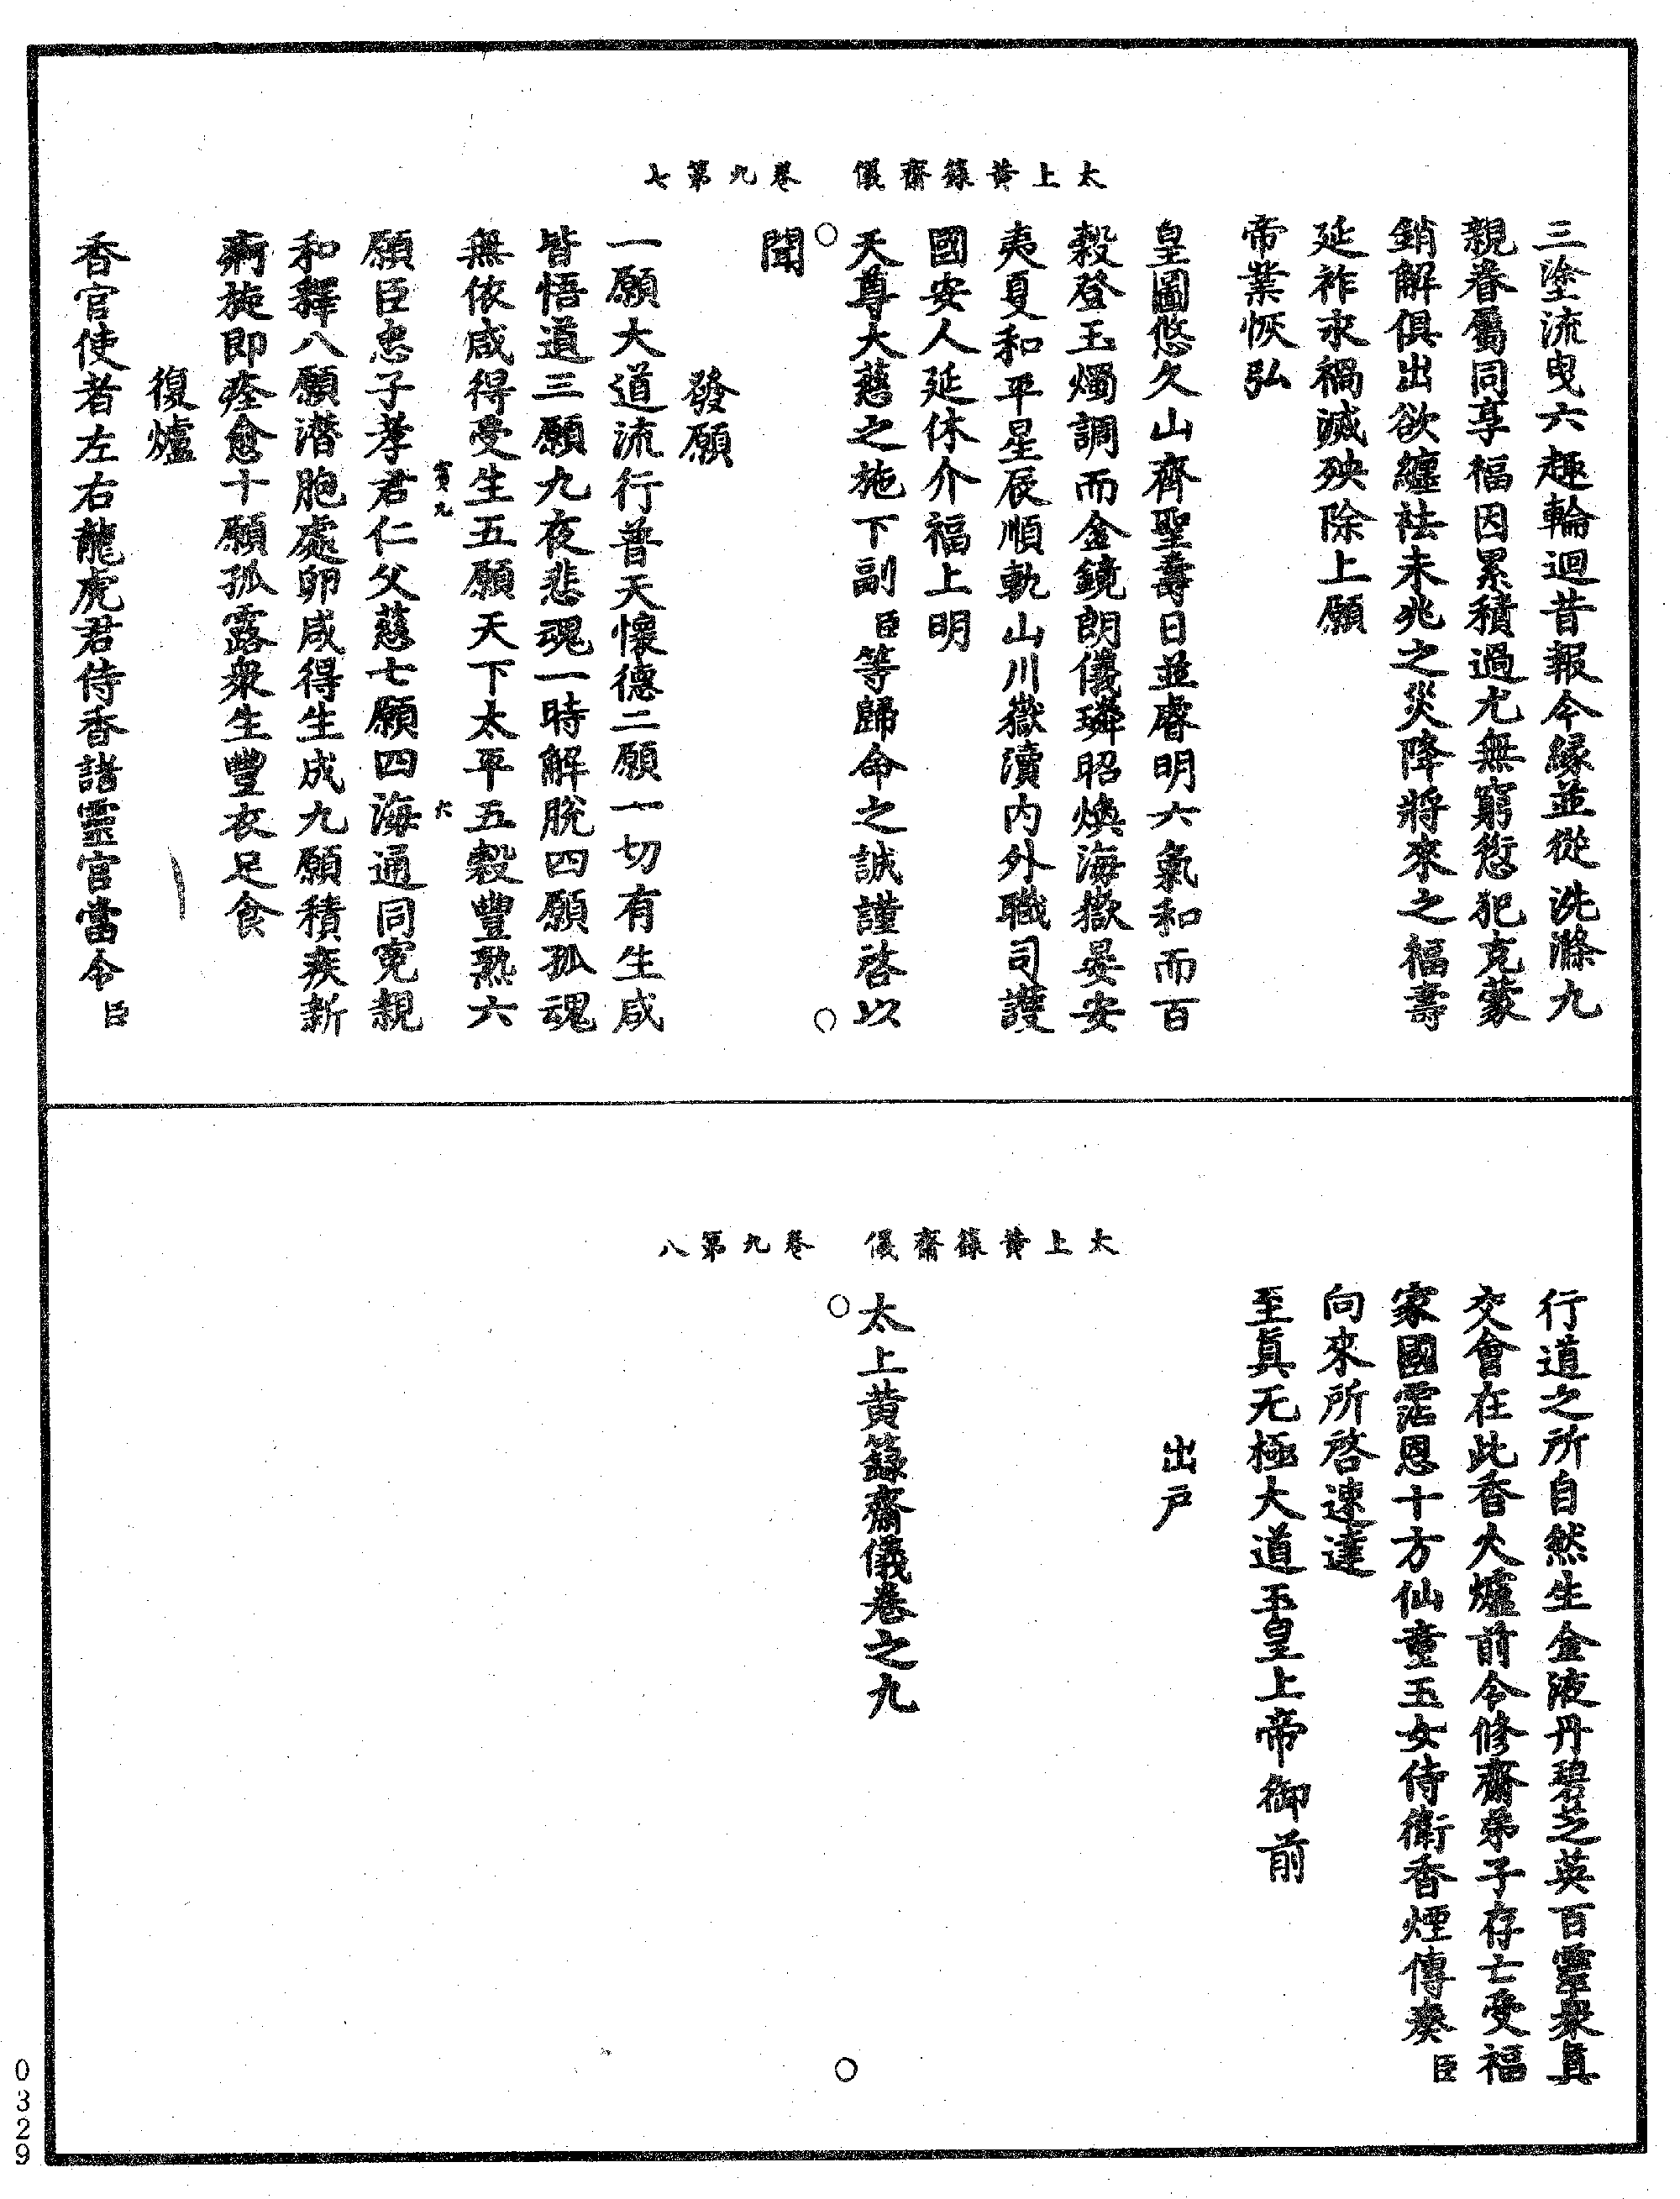 太上黃籙齋儀　卷九第七
三塗流曳六趣輪迴昔報今緣並從洗滌九
親眷屬同享福因累積過尤無窮愆犯克蒙
銷解俱出欲纏祛未兆之災降將來之福壽
延祚永禍滅殃除上願
帝業恢弘
皇圖悠久山齊聖壽日並睿明六氣和而百
穀登玉燭調而金鏡朗儀璘昭煥海嶽晏安
夷夏和平星辰順軌山川嶽瀆內外職司護
國安人延休介福上明
天尊大慈之施下副臣等歸命之誠謹啓以
聞
發願
一願大道流行普天懷德二願一切有生咸
皆悟道三願九夜悲魂一時解脫四願孤魂
無依咸得受生五願天下太平五穀豐熟六
願臣忠子孝君仁父慈七願四海通同冤親
和釋八願潛胞處卵咸得生成九願積疾新
痾旋即痊愈十願孤露衆生豐衣足食
復爐
香官使者左右龍虎君侍香諸靈官當令臣
太上黃籙齋儀　卷九第八
行道之所自然生金液丹碧芝英百靈衆眞
交會在此香火爐前令修齋弟子存亡受福
家國霑恩十方仙童玉女侍衛香煙傳奏臣
向來所啓速達
至眞无極大道玉皇上帝御前
出戶
太上黃籙齋儀卷之九
0329